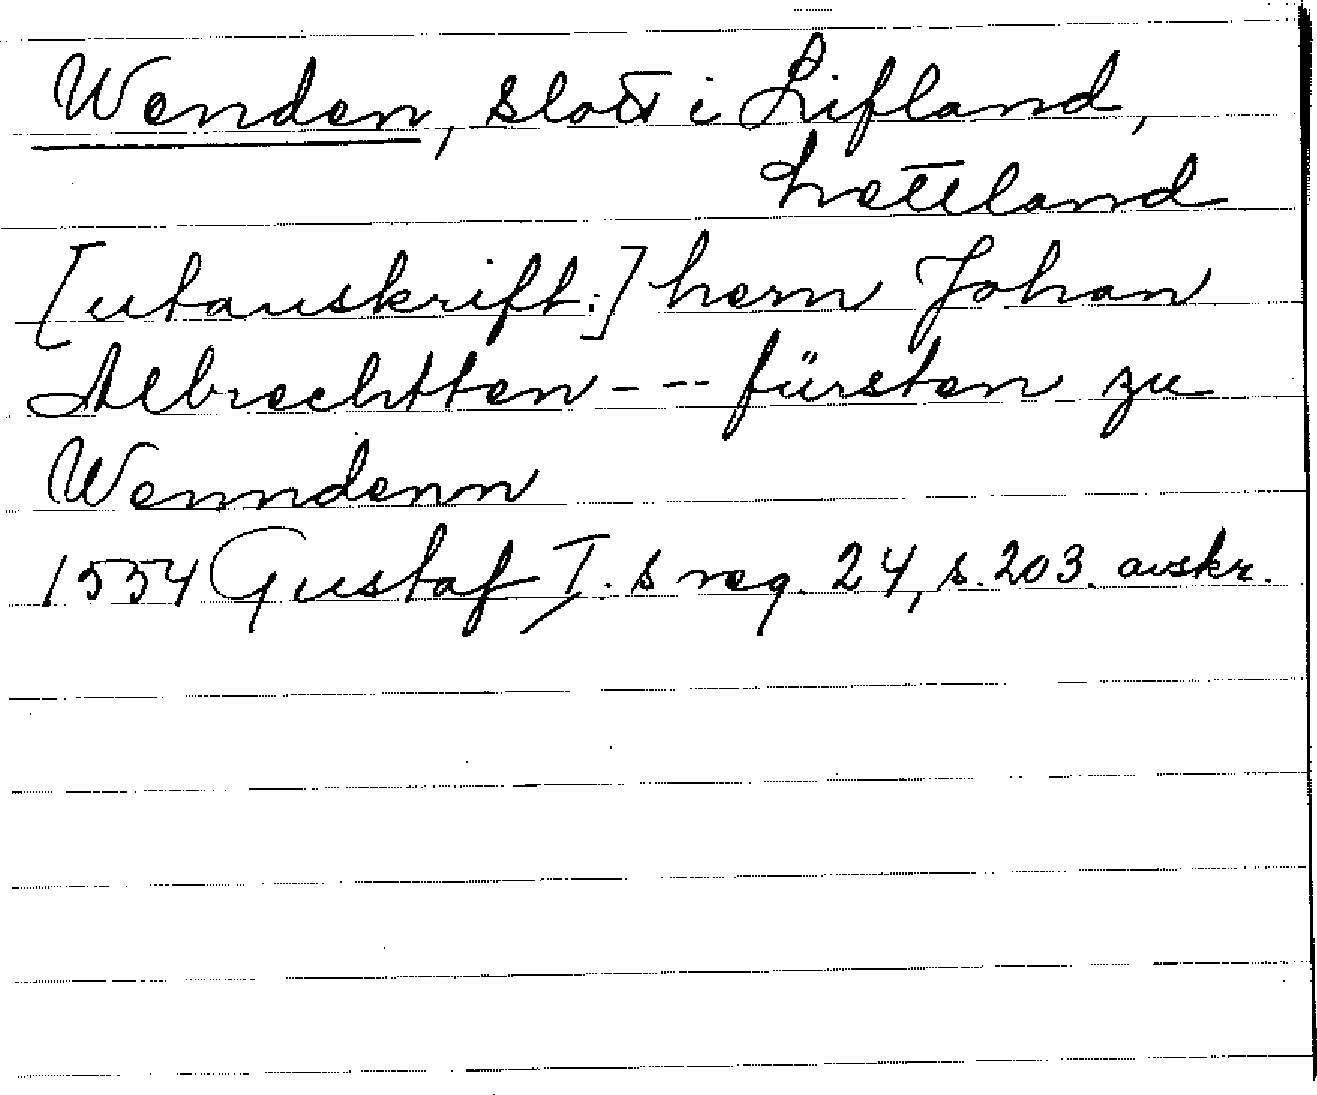 Wenden, slott i Lifland,
Lettland
[utanskrift:] hern Johan
Albrechtten --- fürsten zu
Wenndenn
1554 Gustaf I.s reg. 24, s. 203. avskr.